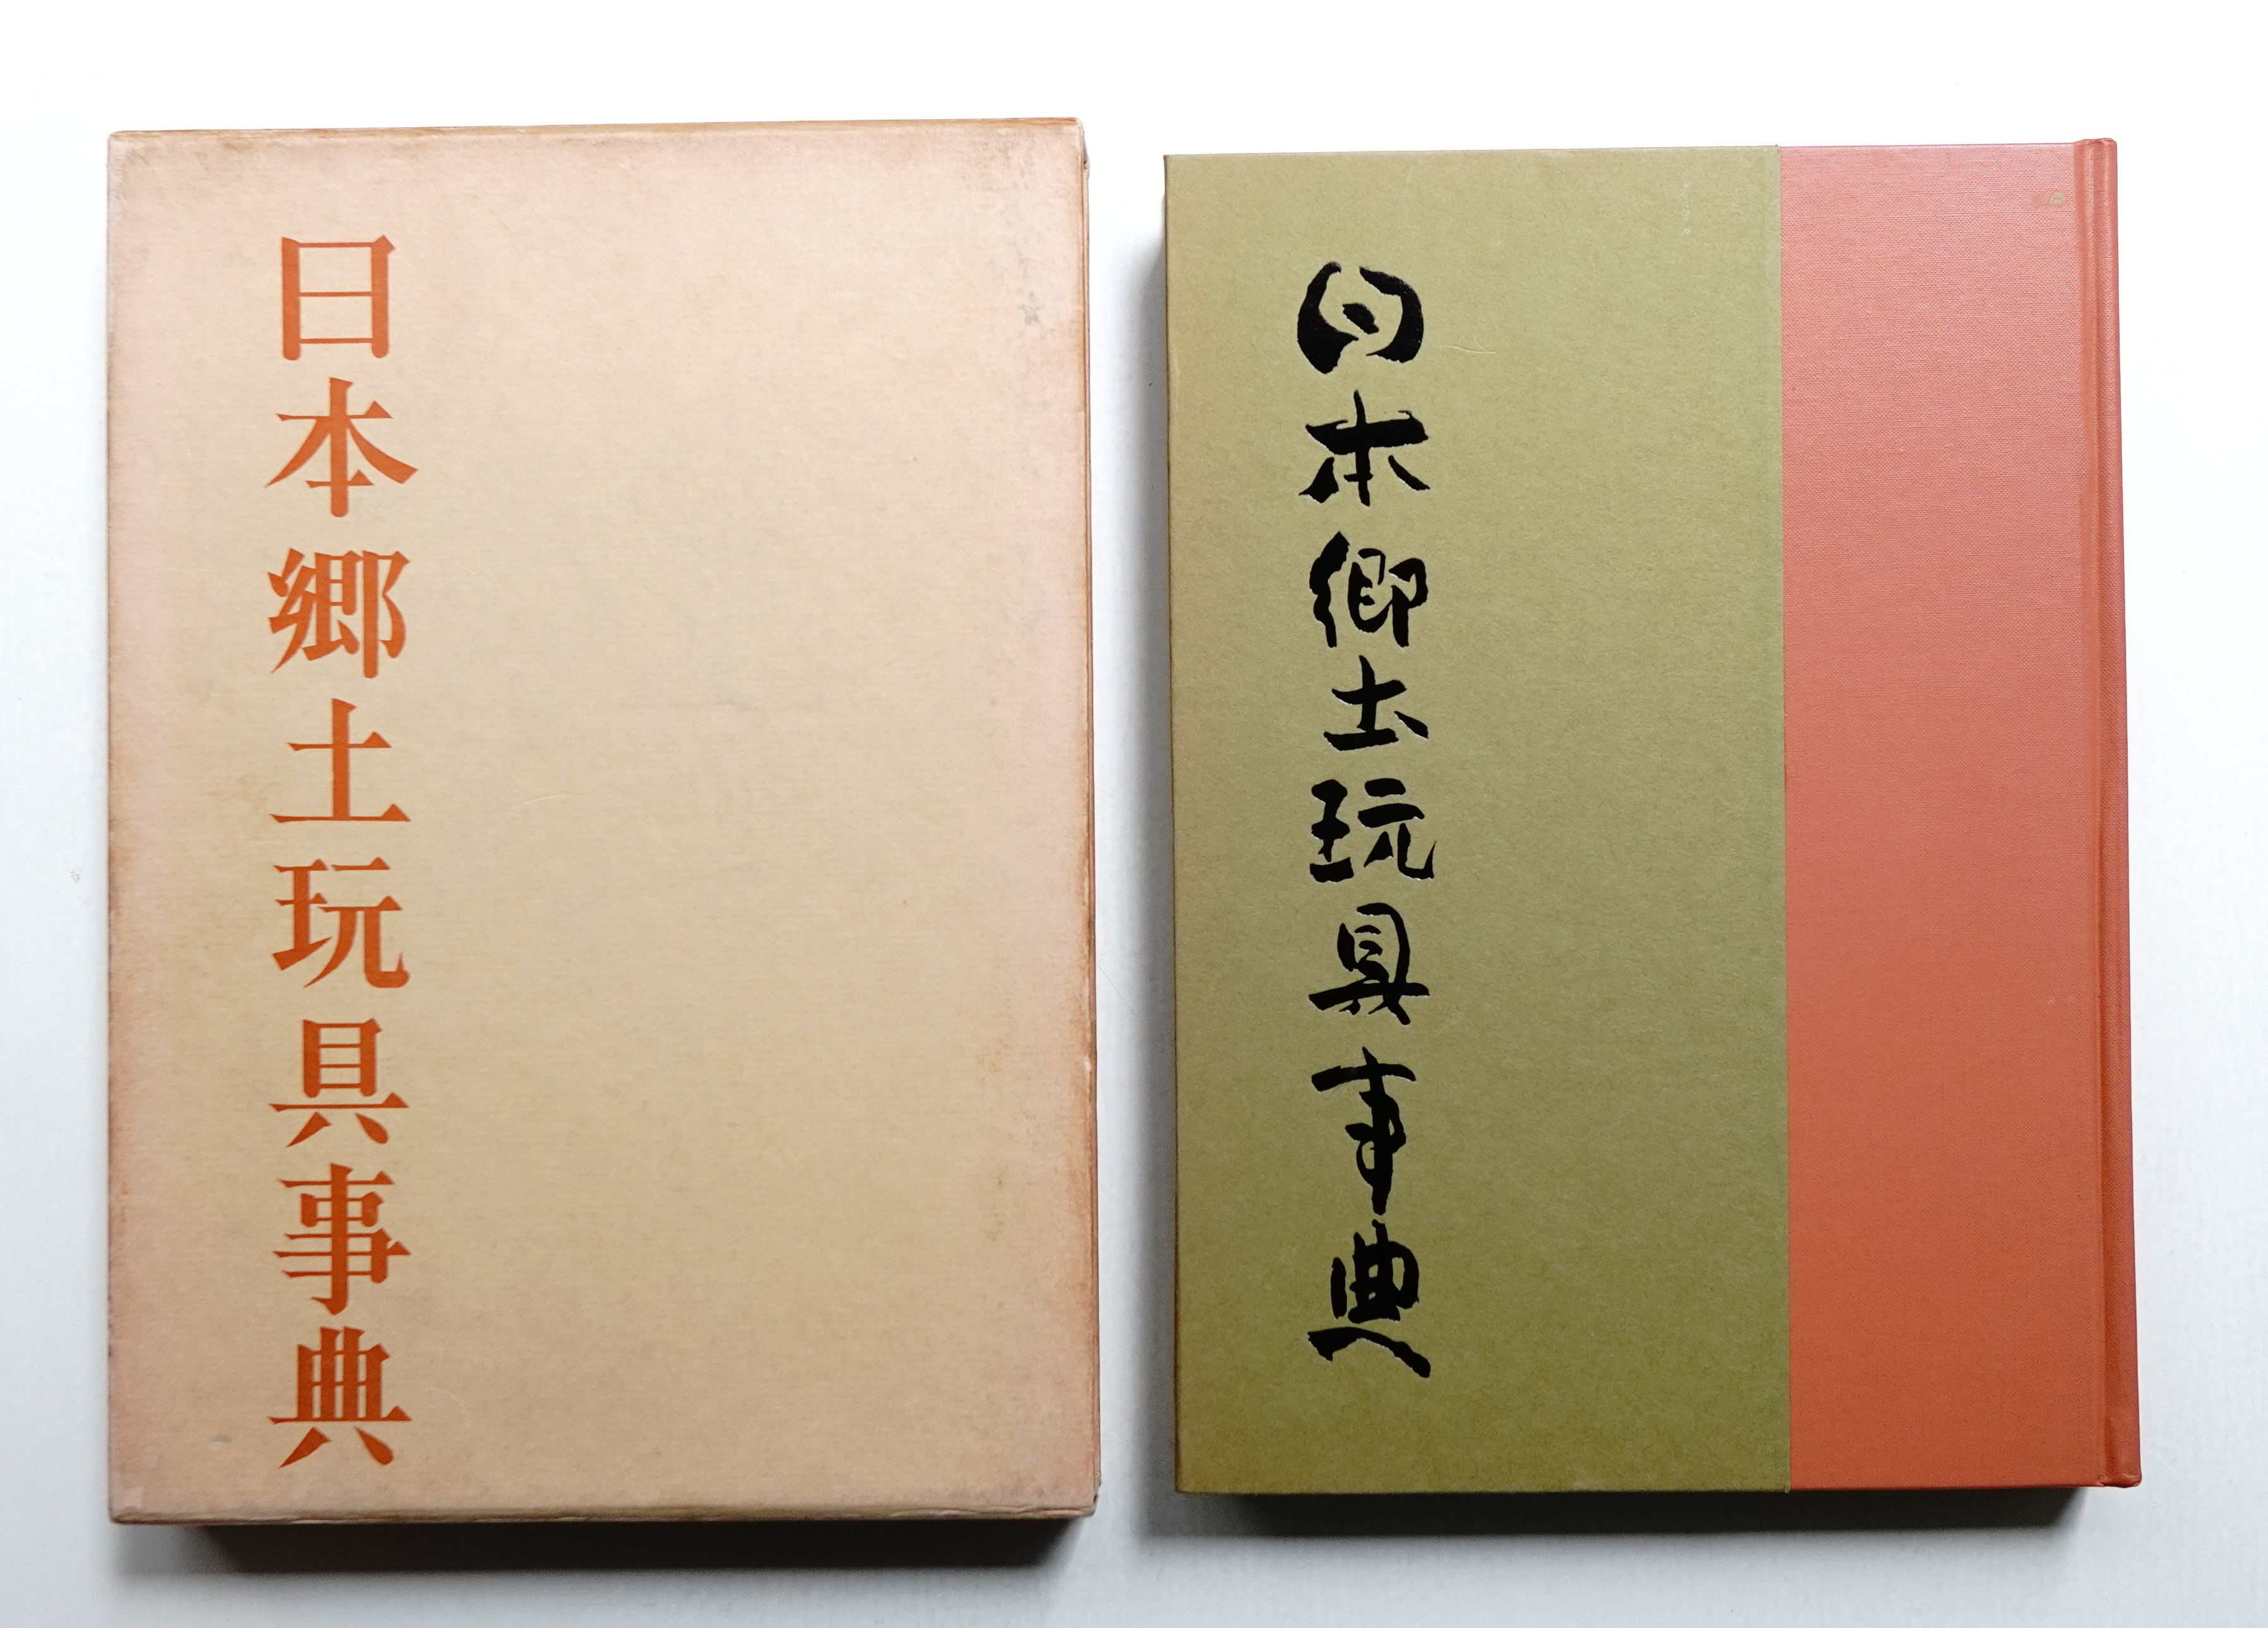 日本郷土玩具事典
日本郷土玩具事典